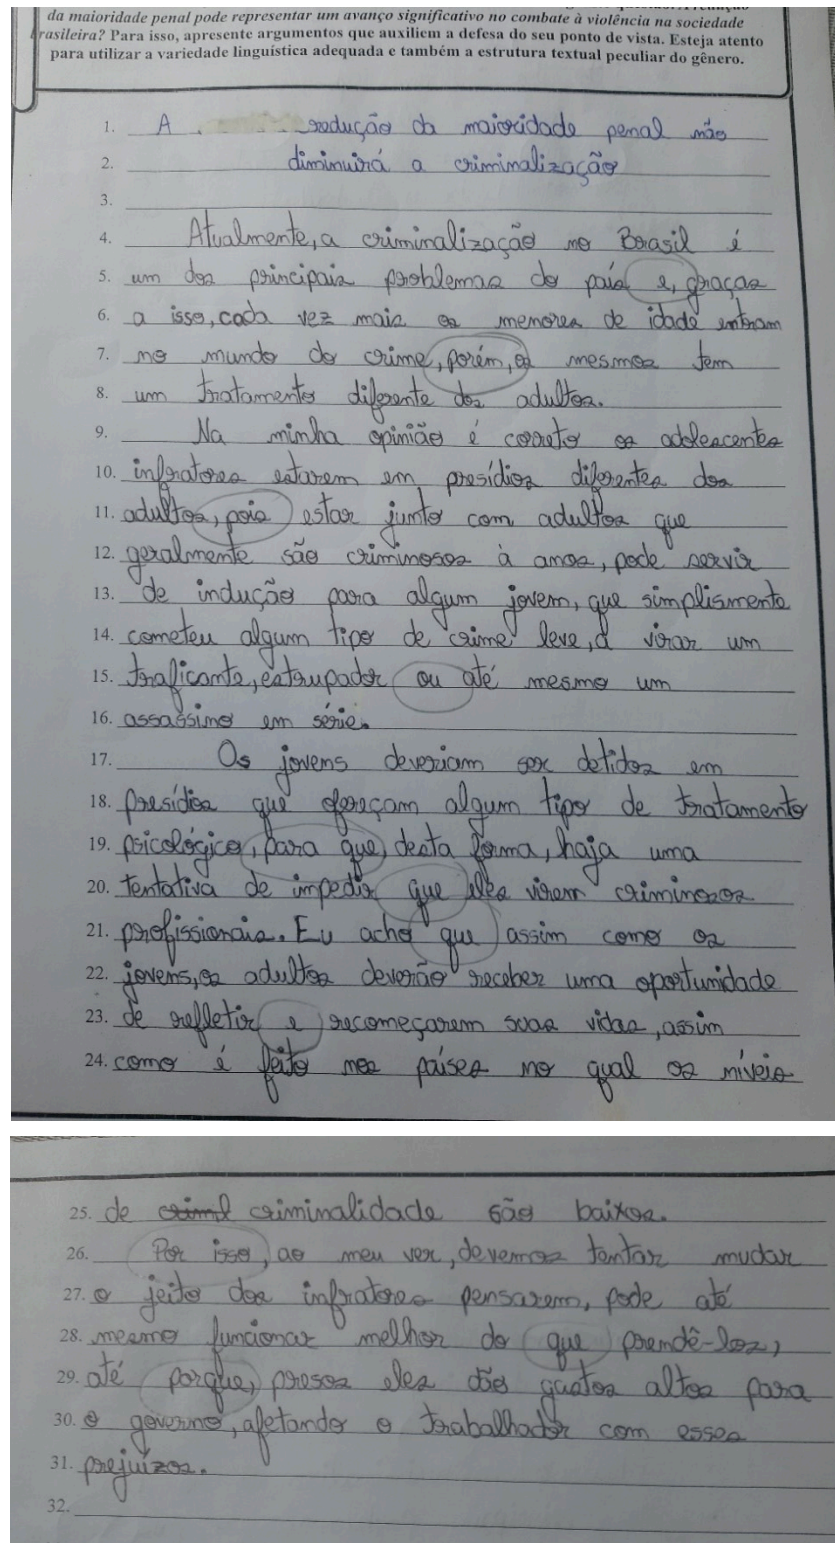 da maioridade penal pode representar um avanço significativo no combate à violência na sociedade
brasileira? Para isso, apresente argumentos que auxiliem a defesa do seu ponto de vista. Esteja atento
para utilizar a variedade linguística adequada e também a estrutura textual peculiar do gênero.
1. A redução da maioridade penal não
2. diminuirá a criminalização
3.
4. Atualmente, a criminalização no Brasil é
5. um dos principais problemas do país e, graças
6. a isso, cada vez mais os menores de idade entram
7. no mundo do crime, porém, os mesmos tem
8. um tratamento diferente dos adultos.
9. Na minha opinião é correto os adolescentes
10. infratores estarem em presídios diferentes dos
11. adultos, pois estar junto com adultos que
12. geralmente são criminosos à anos, pode servir
13. de indução para algum jovem, que simplismente
14. cometeu algum tipo de crime leve, a virar um
15. traficante, estrupador ou até mesmo um
16. assassino em série.
17. Os jovens deveriam ser detidos em
18. presídios que ofereçam algum tipo de tratamento
19. psicológico, para que, desta forma, haja uma
20. tentativa de impedir que eles virem criminosos
21. profissionais. Eu acho que assim como os
22. jovens, os adultos deverão receber uma oportunidade
23. de refletir e recomeçarem suas vidas, assim
24. como é feito nos países no qual os níveis
25. de criminalidade são baixos.
26. Por isso, ao meu ver, devemos tentar mudar
27. o jeito dos infratores pensarem, pode até
28. mesmo funcionar melhor do que prendê-los,
29. até porque, presos eles dão gastos altos para
30. o governo, afetando o trabalhador com esses
31. prejuízos.
32.